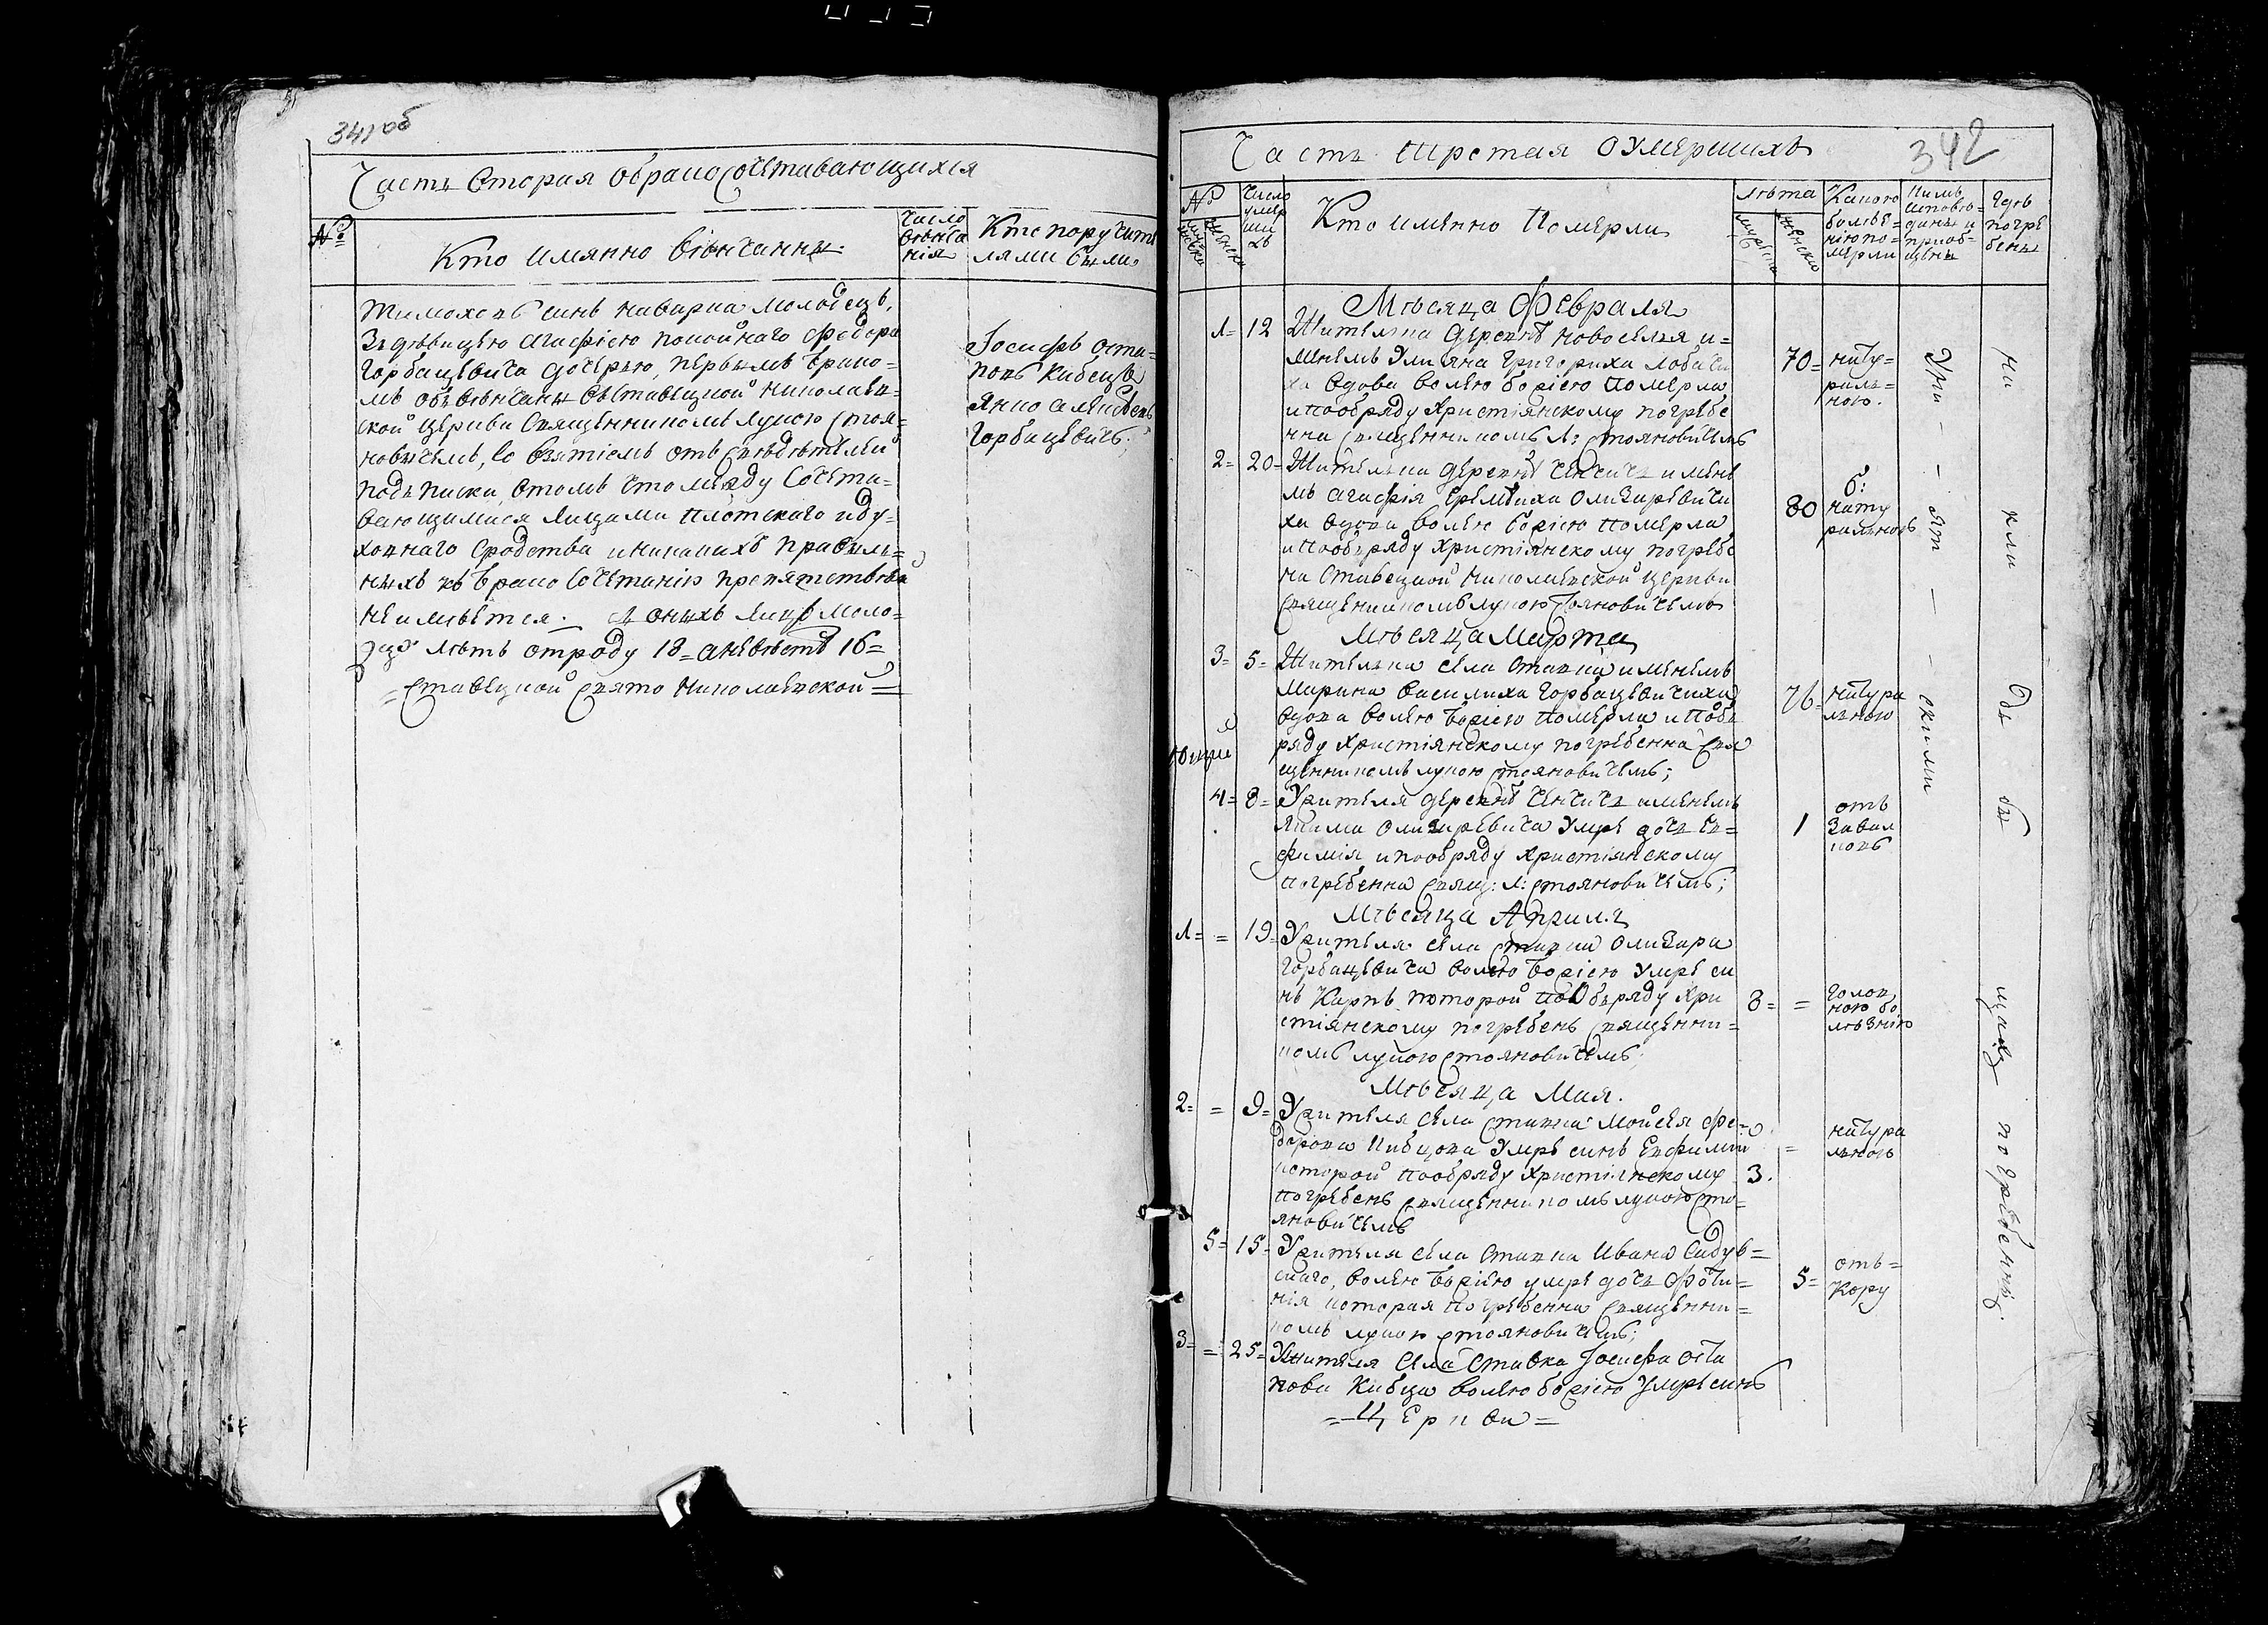 341об
Часть вторая обракосочетавающихся
№
Кто имянно вѣнчанны
Число вѣнчанія
Кто поручителями были
синъ молодецъ,
За дѣвицею Агафіею покойнаго Федора
Горбацевича дочерью, первымъ брако-
мъ обвѣнчаны Ставецкой Николаев-
ской церкви священникомъ Лукою Стоя-
новичемъ, со взятіемъ отъ свѣдѣтелей
подписки, отомъ что между сочета-
вающимися лицами плотскаго иду-
ховнаго сродства иникакихъ правиль-
ныхъ къ бракосочетанію препятствій
неимѣется. оныхъ лицъ моло-
децъ лѣтъ отроду 18= аневѣстѣ 16=
=Ставецкой Свято Николаевской=
Іосифъ Оста-
повъ Кибецъ
Горбацевичъ;
342
Часть третая оумершихъ
№
мужска
женска
Число умершихъ
Кто имянно померли
лѣта
мужска
женска
Какою болѣзнію померли
Кимъ исповѣданы и приобщены
Гдѣ погребены
Мѣсяца Февраля
1= 12 Жителька деревнѣ Новоселья и-
менемъ Уліяна Григориха Лобачи-
ха вдова волею Божіею померла
ипообряду христіянскому погребе-
нна священникомъ Л: Стояновичемъ
70= натуральною.
2= 20= Жителька деревнѣ именемъ
Агафія Еремѣиха Олизаревичи-
ха вдова волею Божіею померла
ипообряду христіянскому погребе-
на Ставецкой Николаевской церкви
священникомъ Лукою Стояновичемъ
80 б: натуральною
Мѣсяца Марта
3= 5= Жителька села Ставка именемъ
Марина Василиха Горбацевичиха
вдова волею Божіею померла и пооб-
ряду христіянскому погребенна свя-
щенникомъ Лукою Стояновичемъ;
76= натуральною
4= 8= Ужителя деревнѣ именемъ
Якима Олизаревича умре дочь Ев-
фимія ипообряду христіянскому
погребенна свящ: Л: Стояновичемъ;
1 отъ
Мѣсяца Априля
1= = 19= Ужителя села Ставка Олизара
Горбацевича волею Божіею умре си-
нъ Карпъ которой пообряду хри-
стіянскому погребенъ священни-
комъ Лукою Стояновичемъ;
8= = головною болѣзнію
Мѣсяца Мая.
2= = 9= Ужителя села Ставка Мойсея Фе-
дорова Кибцова умре синъ Евфимій
которой пообряду христіянскому
погребенъ священникомъ Лукою Сто-
яновичемъ
3. = натуральною
5= 15= Ужителя села Ставка Ивана
волею Божіею умре дочь Фоти-
нія которая погребенна священни-
комъ Лукою Стояновичемъ;
5= отъ= кору
3= = 25= Ужителя села Ставка Іосифа Оста-
пова Кибца волею Божіею умре синъ
=Церкви=
При-
-ят-
-скими
На
кла
дб
би
щахъ
погребенны.